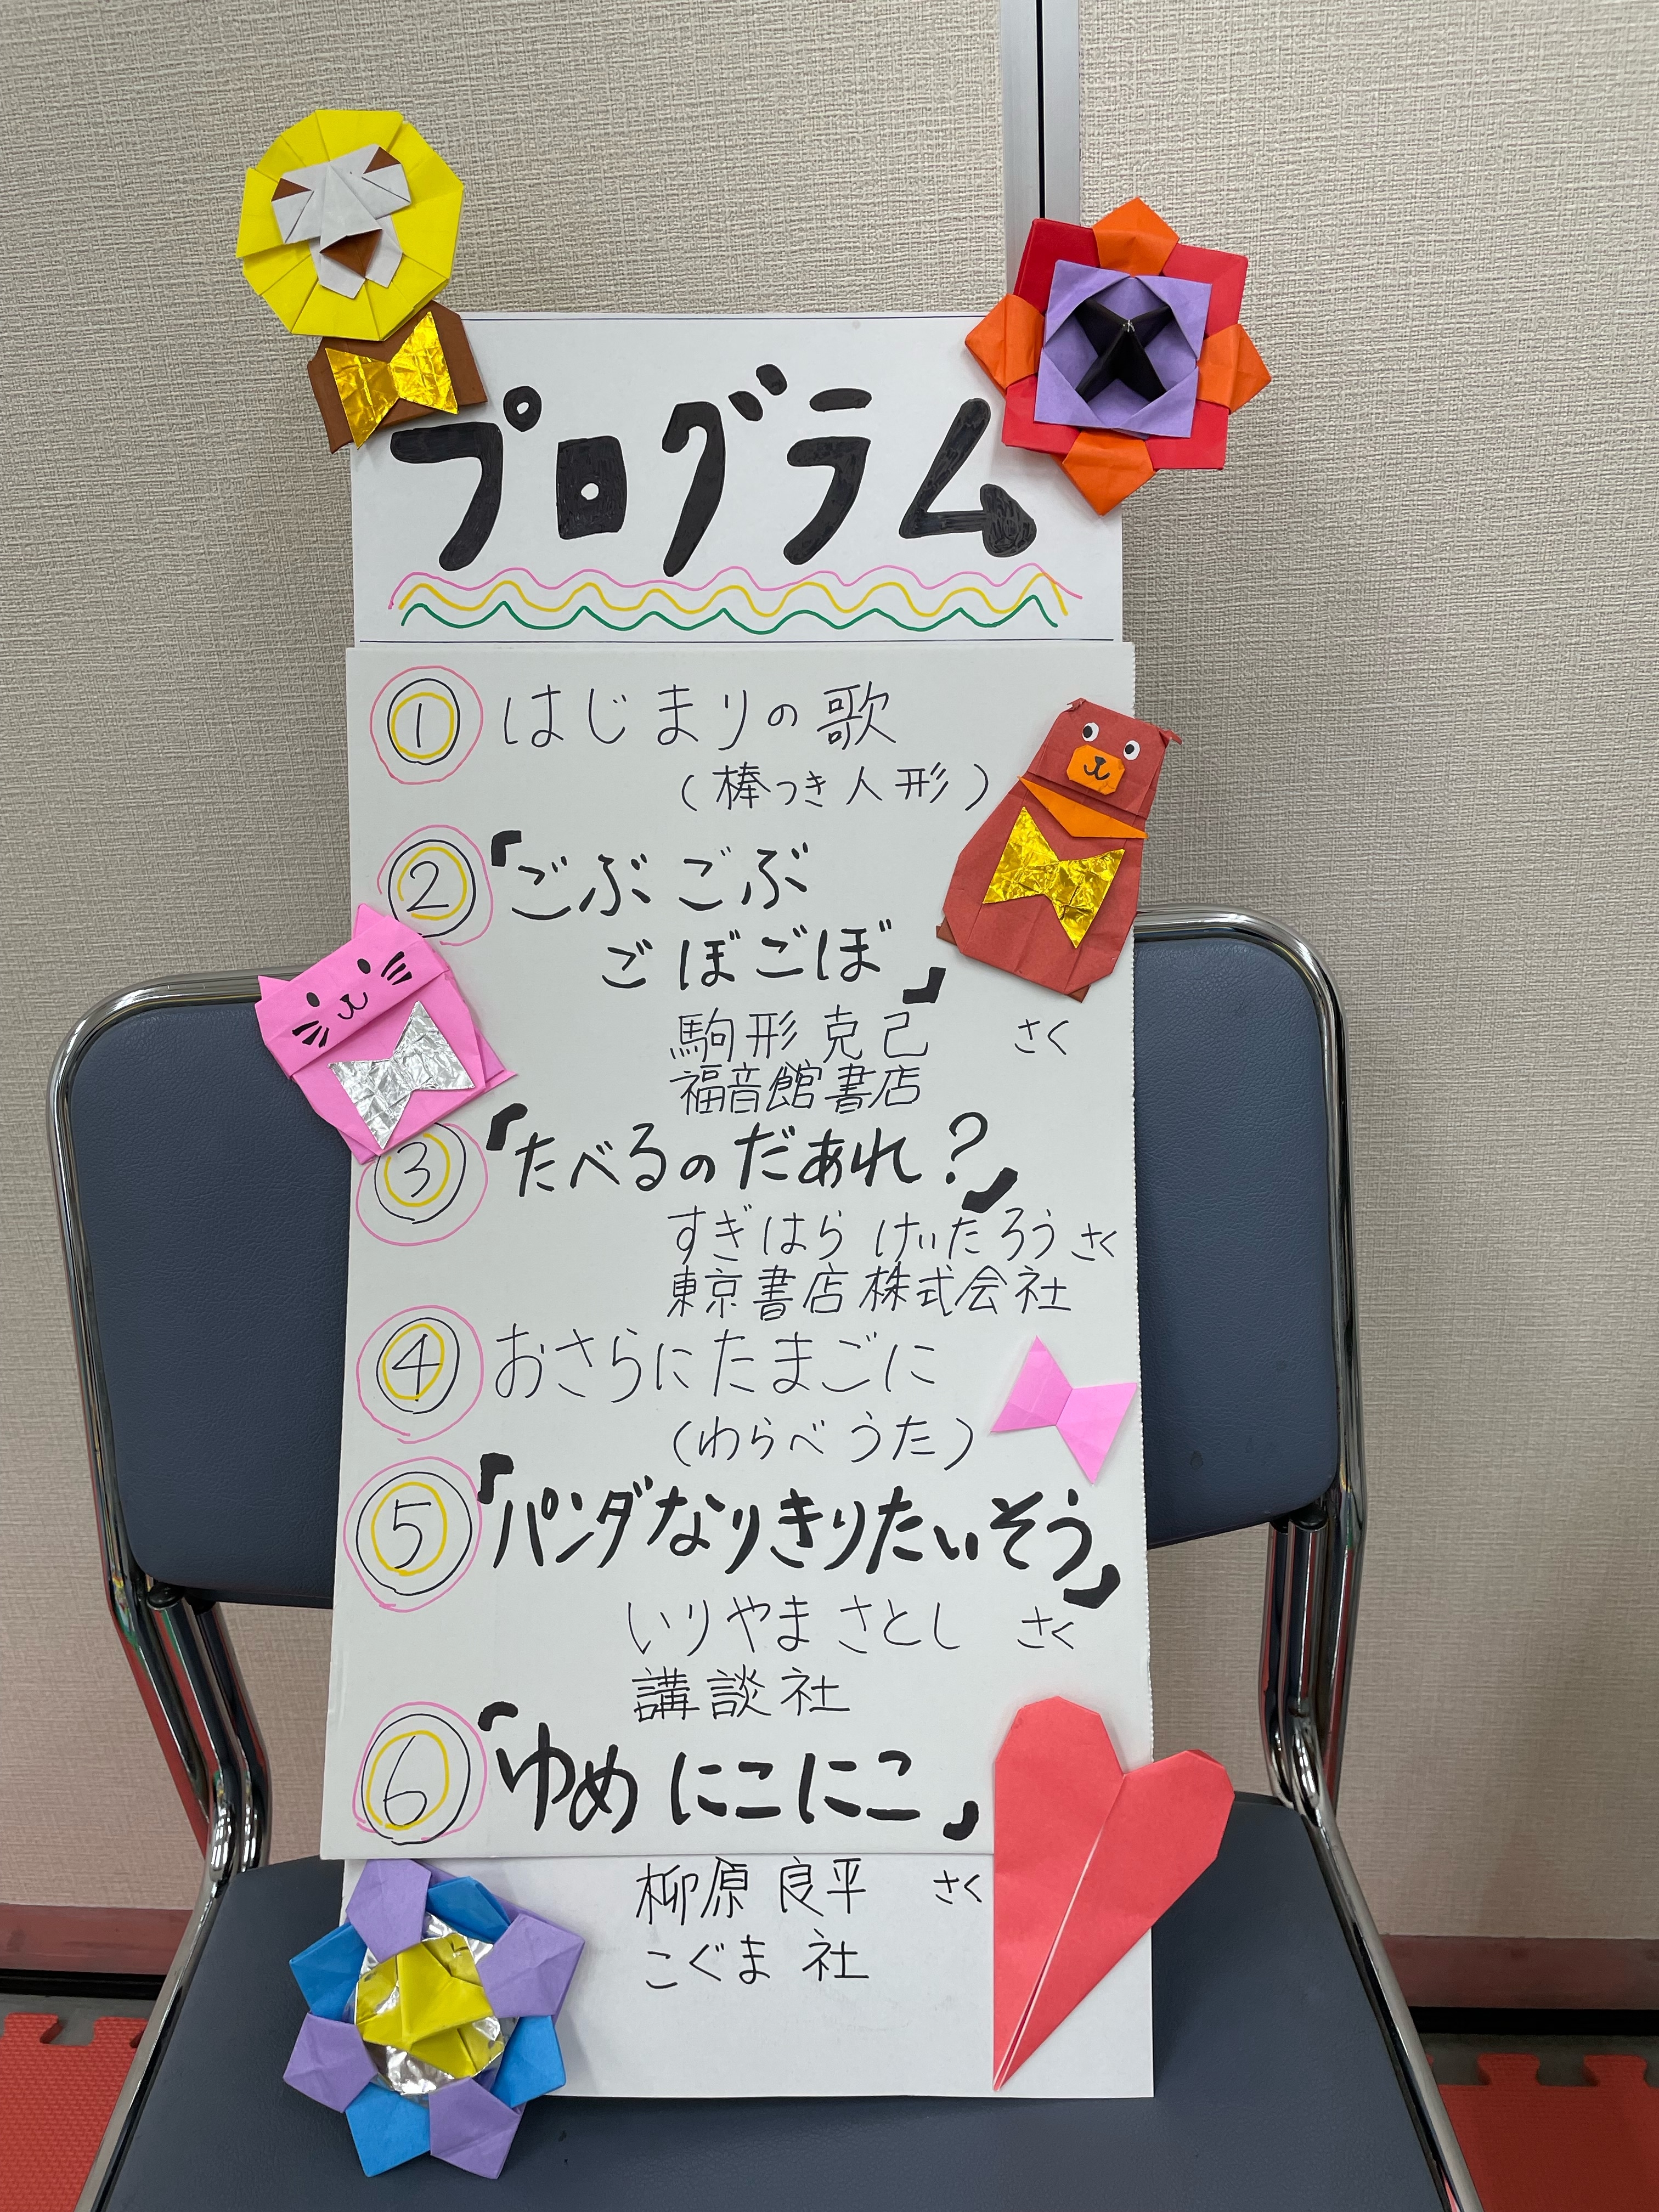 プログラム
① はじまりの歌
(棒つき人形)
② 「ごぶごぶ
ごぼごぼ」
駒形克己 さく
福音館書店
③ 「たべるのだあれ?」
すぎはら けいたろう さく
東京書店株式会社
④ おさらにたまごに
(わらべうた)
⑤ 「パンダなりきりたいそう」
いりやま さとし さく
講談社
⑥ 「ゆめ にこにこ」
柳原 良平 さく
こぐま社